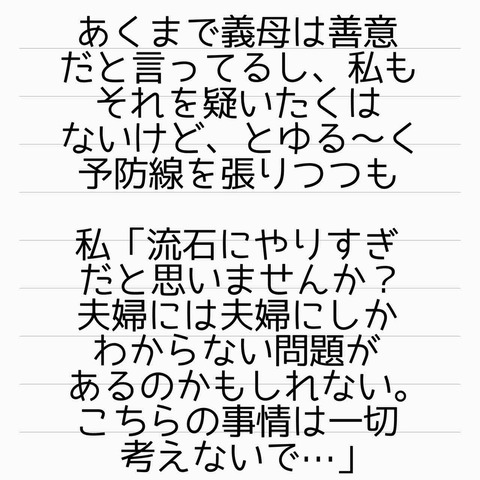 あくまで義母は善意
だと言ってるし、私も
それを疑いたくは
ないけど、とゆる～く
予防線を張りつつも
私「流石にやりすぎ
だと思いませんか？
夫婦には夫婦にしか
わからない問題が
あるのかもしれない。
こちらの事情は一切
考えないで…」